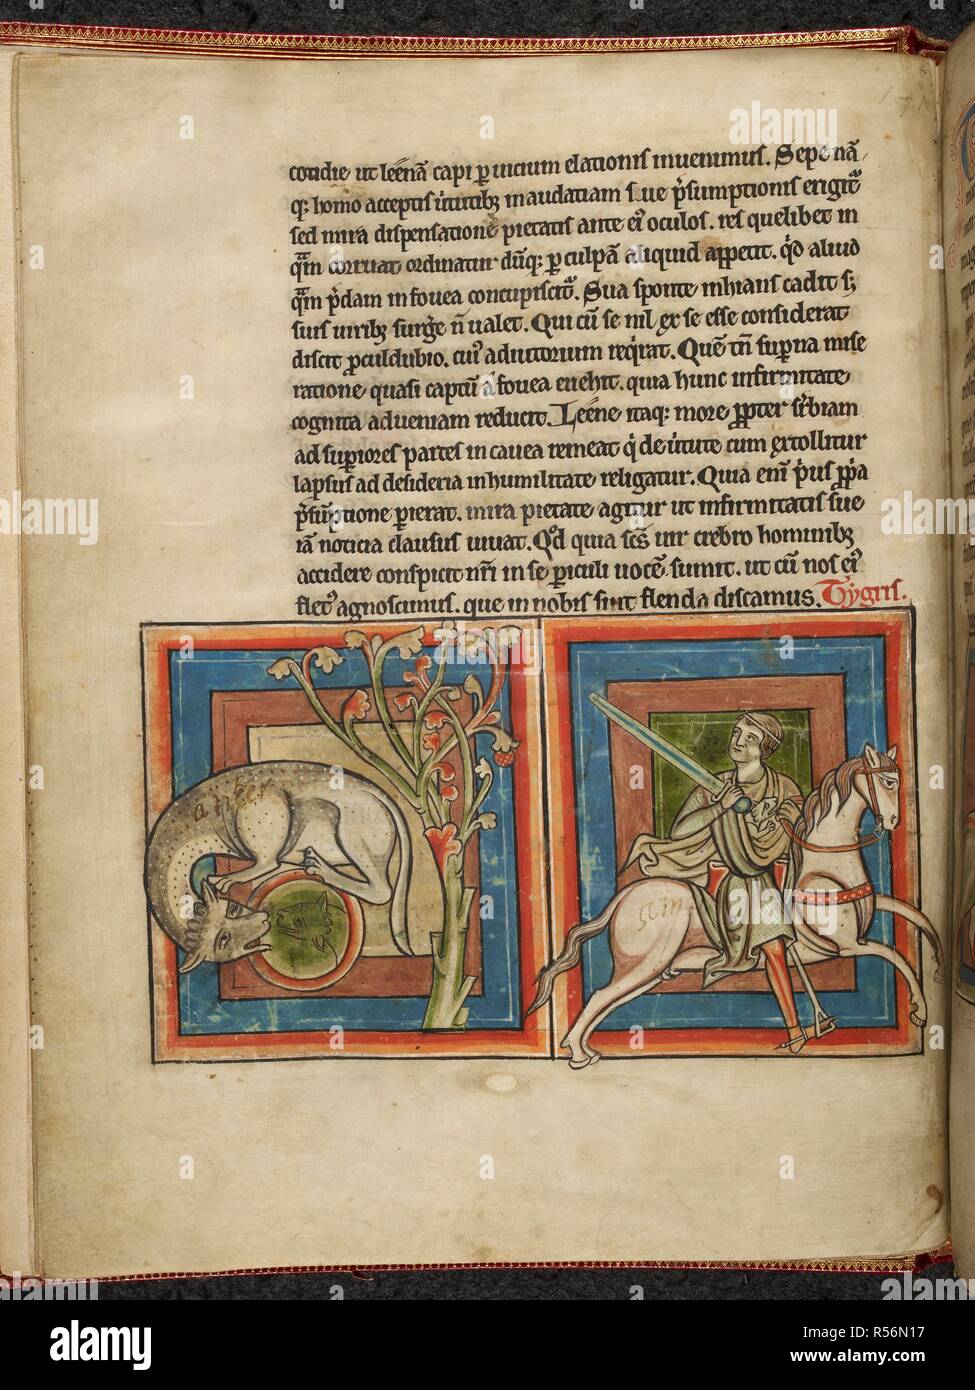 cotidie ut leenā capi p̱ uicium elationis inuenimus. Sepe nā
q; homo acceptis ututibꝫ in audatiam sue p̄sumptionis erigit᷑
sed mira dispensatione pietatis ante ei᷒ oculos. res quelibet in
qͣm corruat ordinatur dūq; p̱ culpā aliquid appetit. qͦd aliud
qͣm p̄dam in fouea concupiscit᷑. Sua sponte inhians cadit s;
suis uiribꝫ surḡe n̄ ualet. Qui cū se nil ex se esse considerat
discit p̱culdubio. cui᷒ adiutorium req̇rat. Quē tn̄ sup̱na mise
ratione quasi captū a fouea euehit. quia hunc infirmitate
cognita ad ueniam reducit. Leene itaq; more pp̱ter
ad sup̱iores partes in cauea remeat q̇ de u̇tute cum extollitur
lapsus ad desideria in humilitate religatur. Quia eni̅ ṗus
p̄sūptione p̱ierat. mira pietate agitur ut infirmitatis sue
iā noticia clausus uiuat. Qͦd quia sc̄s uir crebro hominibꝫ
accidere conspicit nr̄i in se p̱iculi uocē sumit. ut cū nos ei᷒
flet᷒ agnoscimus. que in nobis sint flenda discamus. Tygris.
alamy
alamy stock photo
R56N17
www.alamy.com